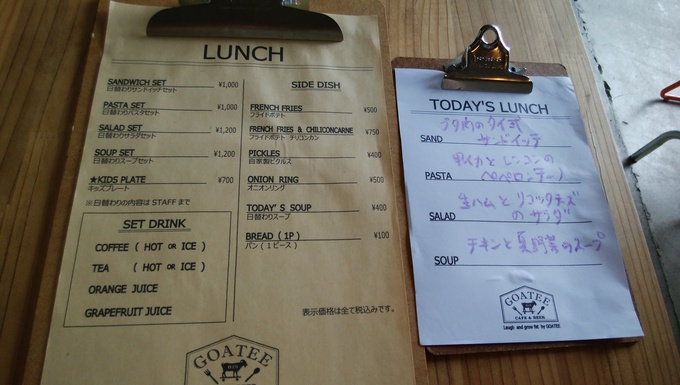 LUNCH
SANDWICH SET ¥1,000
日替わりサンドイッチセット
PASTA SET ¥1,000
日替わりパスタセット
SALAD SET ¥1,200
日替わりサラダセット
SOUP SET ¥1,200
日替わりスープセット
★KIDS PLATE ¥700
キッズプレート
※日替わりの内容は STAFF まで
SET DRINK
COFFEE ( HOT OR ICE )
TEA ( HOT OR ICE )
ORANGE JUICE
GRAPEFRUIT JUICE
SIDE DISH
FRENCH FRIES ¥500
フライドポテト
FRENCH FRIES & CHILICONCARNE ¥750
フライドポテト、チリコンカン
PICKLES ¥400
自家製ピクルス
ONION RING ¥500
オニオンリング
TODAY'S SOUP ¥400
日替わりスープ
BREAD (1P) ¥100
パン（1ピース）
表示価格は全て税込みです。
GOATEE
TODAY'S LUNCH
ブタ肉のタイ式
SAND サンドイッチ
甲イカとレンコンの
PASTA ペペロンチーノ
生ハムとリコッタチーズ
SALAD のサラダ
チキンと夏野菜のスープ
SOUP
GOATEE
CAFE & BEER
Laugh and grow fat by GOATEE